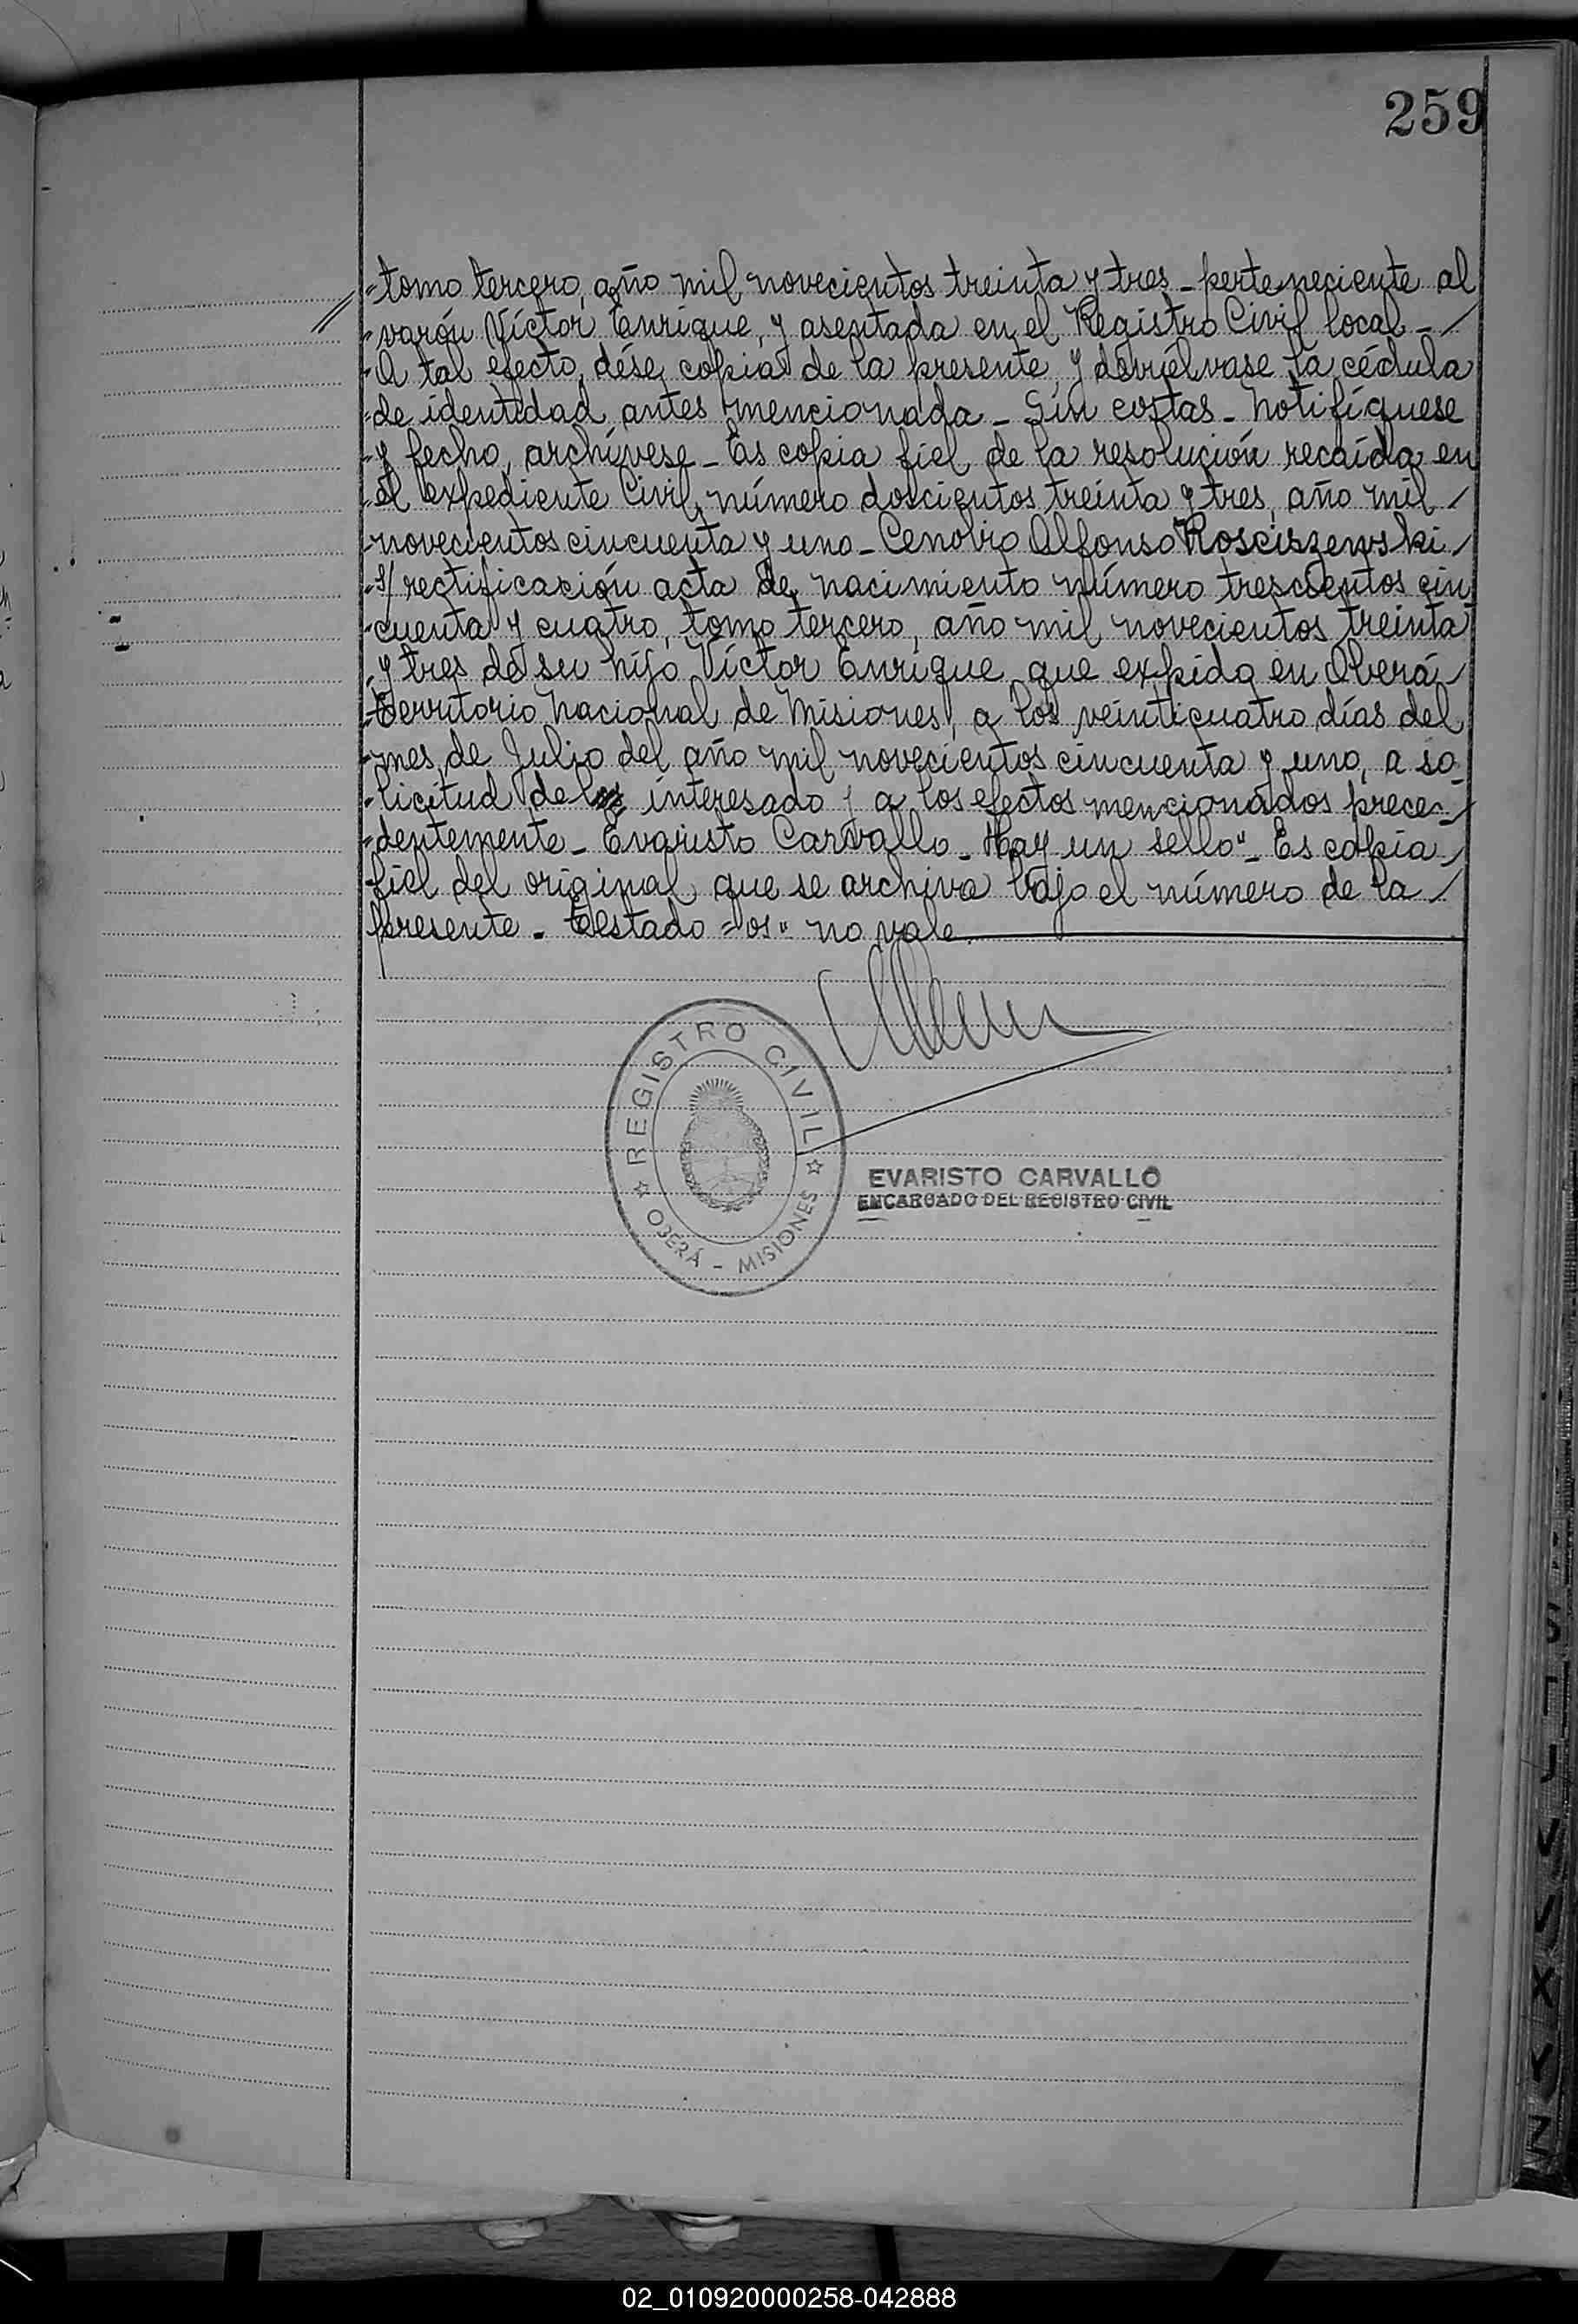 259
"tomo tercero, año mil novecientos treinta y tres - perteneciente al
"varón Víctor Enrique, y asentada en el Registro Civil local - /
"A tal efecto, dése copia de la presente, y devuélvase la cédula
"de identidad antes mencionada - Sin costas - Notifíquese
"y fecho, archívese - Es copia fiel de la resolución recaída en
"el expediente Civil, número doscientos treinta y tres, año mil /
"novecientos cincuenta y uno - Cenobio Alfonso Rosciszewski /
"s/ rectificación acta de nacimiento número trescientos cin
"cuenta y cuatro, tomo tercero, año mil novecientos treinta
"y tres de su hijo Víctor Enrique que expido en Oberá /
"Territorio Nacional de Misiones, a los veinticuatro días del
"mes de Julio del año mil novecientos cincuenta y uno, a so_
"licitud del interesado y a los efectos mencionados prece- /
"dentemente - Evaristo Carvallo - Hay un sello" - Es copia /
fiel del original que se archiva bajo el número de la /
presente - Testado = "os" no vale
REGISTRO CIVIL
OBERÁ - MISIONES
EVARISTO CARVALLO
ENCARGADO DEL REGISTRO CIVIL
S
T
J
V
V
X
Y
Z
02_010920000258-042888